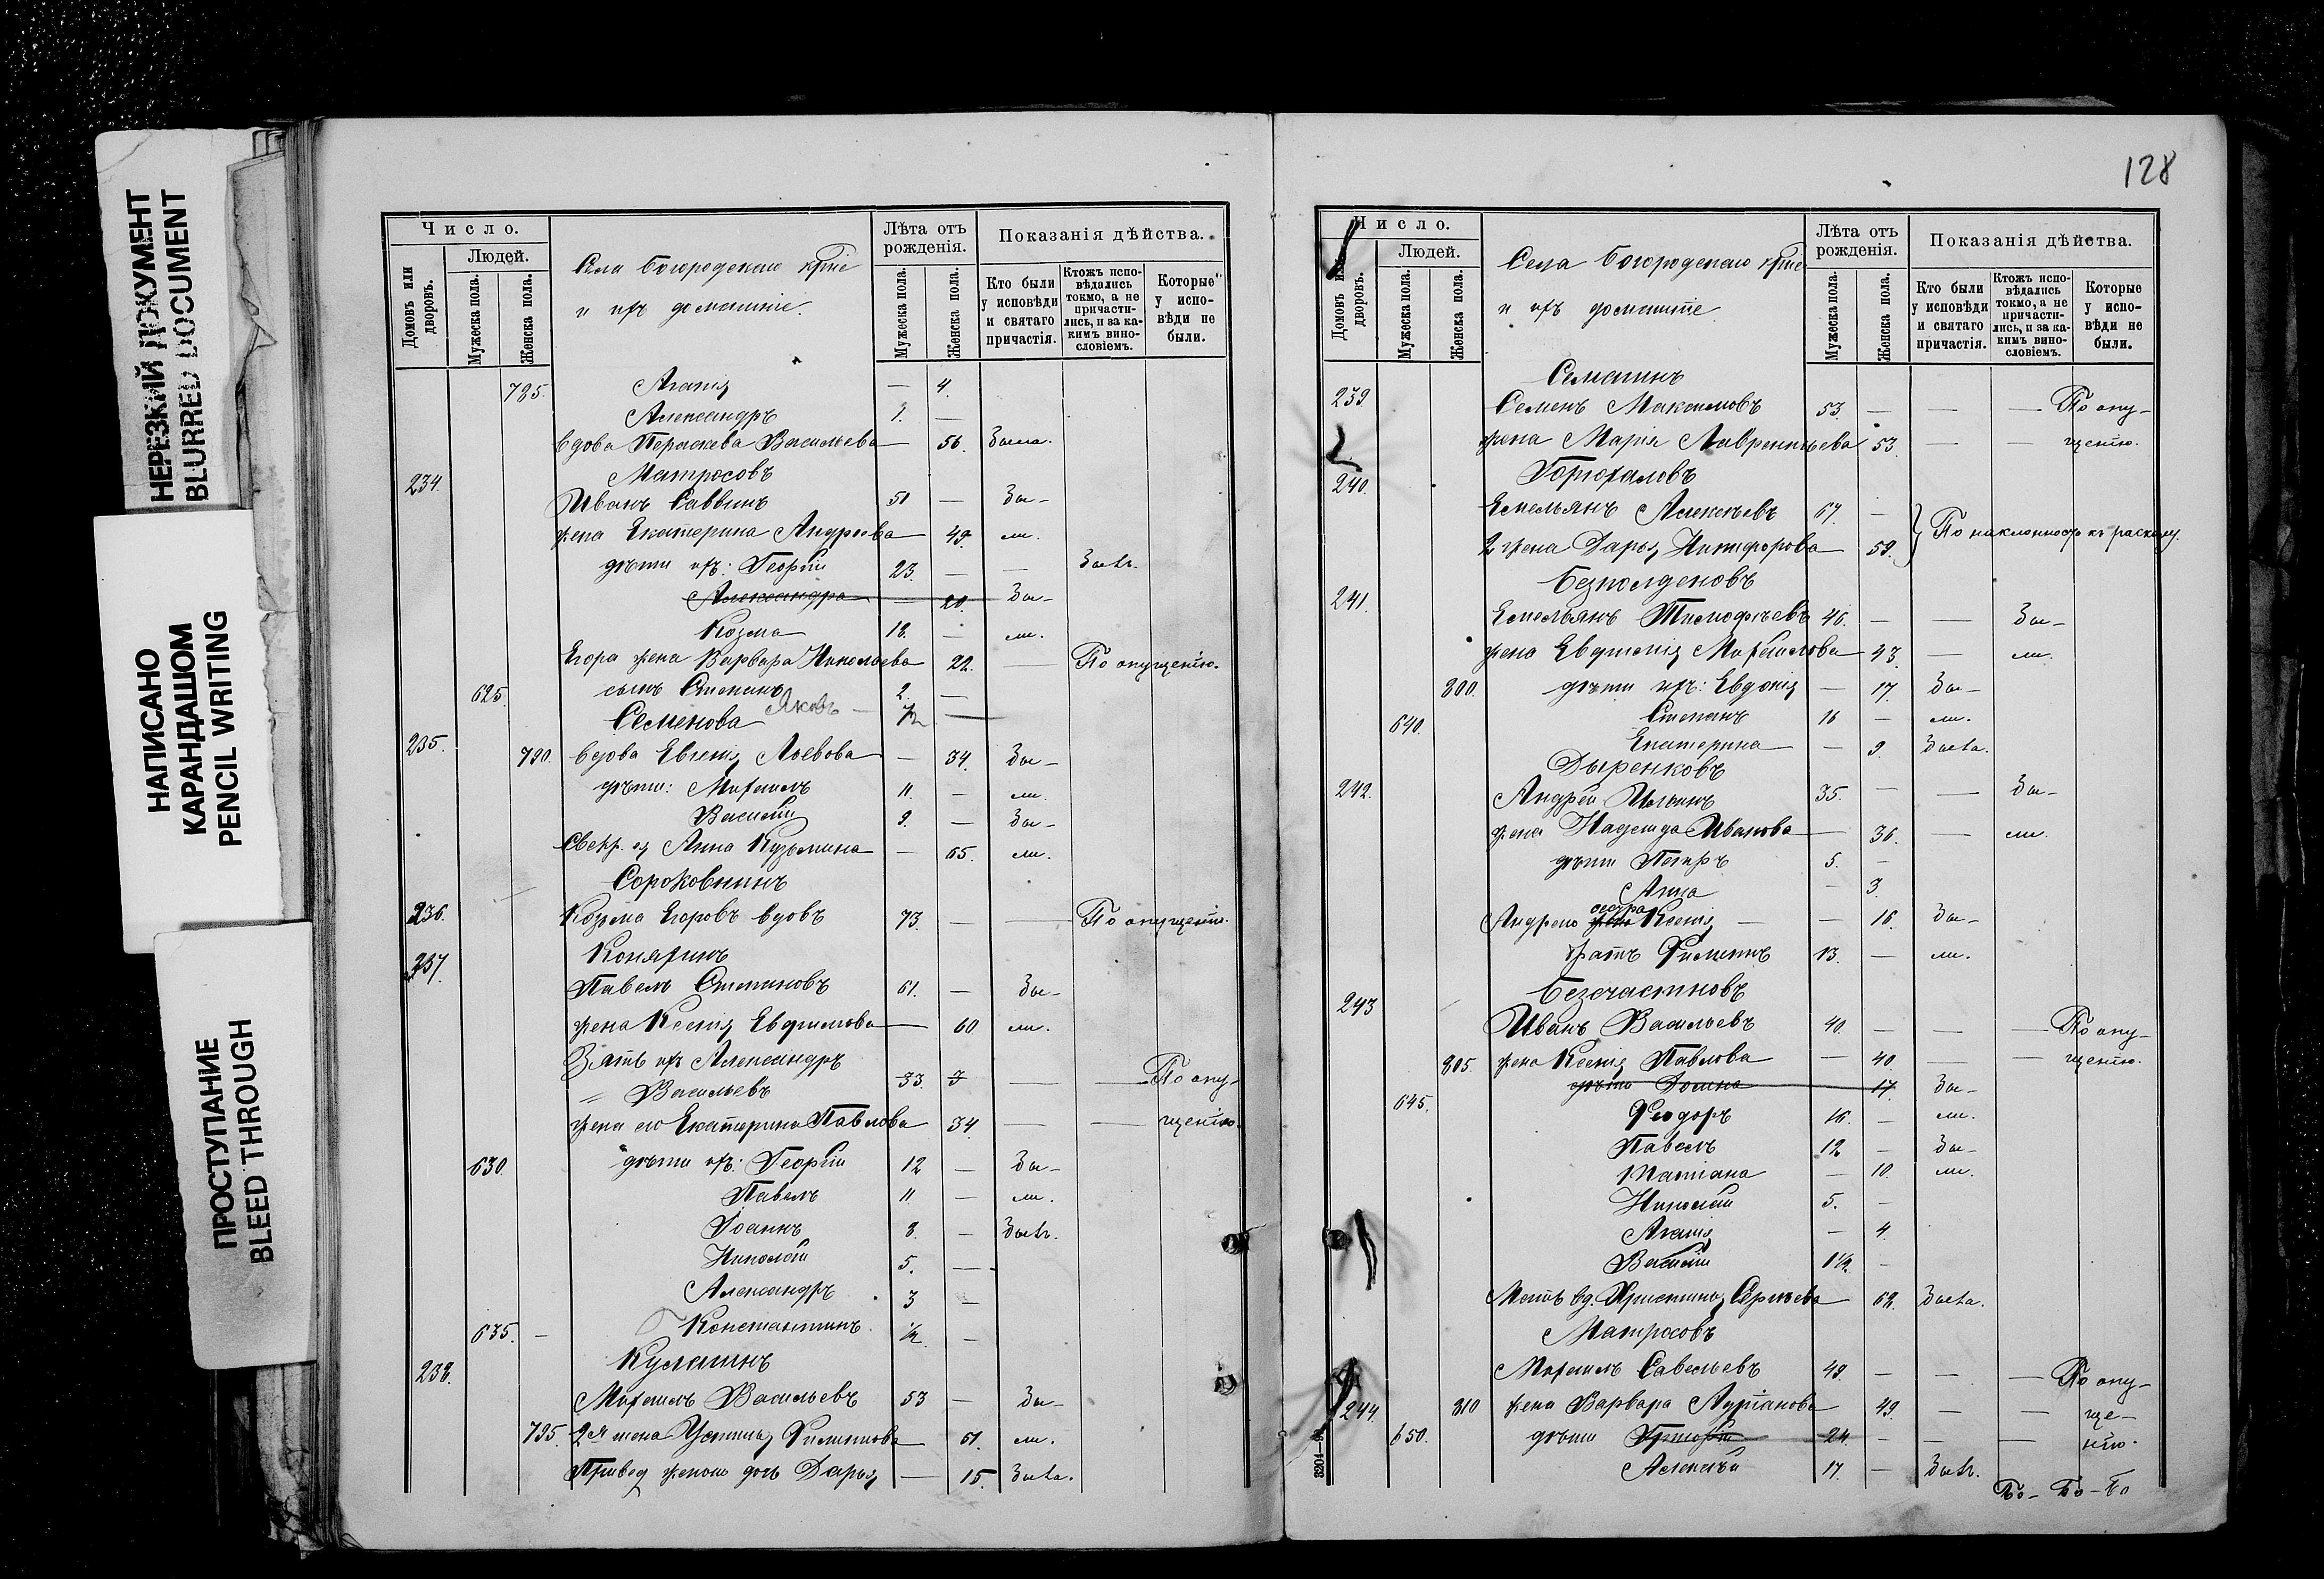 НЕРЕЗКИЙ ДОКУМЕНТ
BLURRED DOCUMENT
НАПИСАНО
КАРАНДАШОМ
PENCIL WRITING
ПРОСТУПАНИЕ
BLEED THROUGH
Число.
Домовъ или дворовъ.
Людей.
Мужеска пола.
Женска пола.
Села Богородскаго крте
и ихъ домашніе.
Лѣта отъ рожденія.
Мужеска пола.
Женска пола.
Показанія дѣйства.
Кто были у исповѣди и святаго причастія.
Ктожъ исповѣдались токмо, а не причастились, и за каким винословіемъ.
Которые у исповѣди не были.
785. Агапія — 4.
Александръ 1. —
вдова Параскева Васильева — 56.
234. Матросовъ
Иванъ Саввинъ 50 — Бы-
жена Екатерина Андреева 49. ли.
дѣти ихъ: Георгій 23. — —
Александра — 20. Бы-
Козма 18. — ли.
Егора жена Варвара Николаева 22. — По опущенію.
625. сынъ Степанъ 2. —
Яковъ — ½ —
235. Семенова
790. вдова Евгенія Львова — 34. Бы-
дѣти: Михаилъ 11. — ли.
Василій 9. — Бы-
Свекр. ея Анна Кузьмина — 65. ли.
Сороковнинъ
236. Козьма Егоровъ вдовъ 73. — — По опущенію.
237. Коняхинъ
Павелъ Степановъ 61. — Бы-
жена Ксенія Евфимова — 60 ли.
Зять ихъ Александръ
Васильевъ 33. — — По опу-
жена его Екатерина Павлова 34. — — щенію.
630. дѣти ихъ: Георгій 12 — Бы-
Павелъ 11 — ли.
Іоаннъ 8. — Былъ.
Николай 5. —
Александръ 3 —
635. — Константинъ ½ —
238. Кулагинъ
Михаилъ Васильевъ 53 — Бы-
795. 2я жена Устинія Филиппова 61. ли.
Привед. женою дочь Дарья — 15. Была.
128
Число.
Домовъ или дворовъ.
Людей.
Мужеска пола.
Женска пола.
Села Богородскаго крте
и ихъ домашніе
Лѣта отъ рожденія.
Мужеска пола.
Женска пола.
Показанія дѣйства.
Кто были у исповѣди и святаго причастія.
Ктожъ исповѣдались токмо, а не причастились, и за каким винословіемъ.
Которые у исповѣди не были.
239. Семагинъ
Семенъ Максимовъ 53. — — — По опу-
жена Марія Лаврентьева 53. — — щенію.
240.
Емельянъ Алексѣевъ 67. —
2 жена Дарья Никифорова 59. По наклонност къ расколу.
241. Безполденовъ
Емельянъ Тимофѣевъ 46. — — Бы-
жена Евфимія Михайлова 43. — ли.
800. дѣти ихъ: Евдокія — 17. Бы-
640. Степанъ 16 — ли.
Екатерина — 9. Была.
242. Дыренковъ
Андрей Ильинъ 35. — — Бы-
жена Надежда Иванова — 36. — ли.
дѣти Петръ 5. —
Анна — 3.
Андрею сестра Ксенія — — 16. Бы-
братъ Филиппъ 13. — ли.
243 Безсчастновъ
Иванъ Васильевъ 40. — — — По опу-
805. жена Ксенія Павлова — 40. — — щенію.
дѣти Домна 17. Бы-
645. Ѳеодоръ 16. — ли.
Павелъ 12 — Бы-
Татіана — 10. ли.
Николай 5. —
Агапія — 4.
Василій 1½. —
Мать вд. Христина Сергѣева 68. Была.
Матросовъ
Михаилъ Савельевъ 49. — — — По опу-
244. 810 жена Варвара Лукіанова 49. — — ще-
650. дѣти Григорій 24. — — — нію.
Алексѣй 17. — Былъ.
Бо- Бо- Бо
3204—9